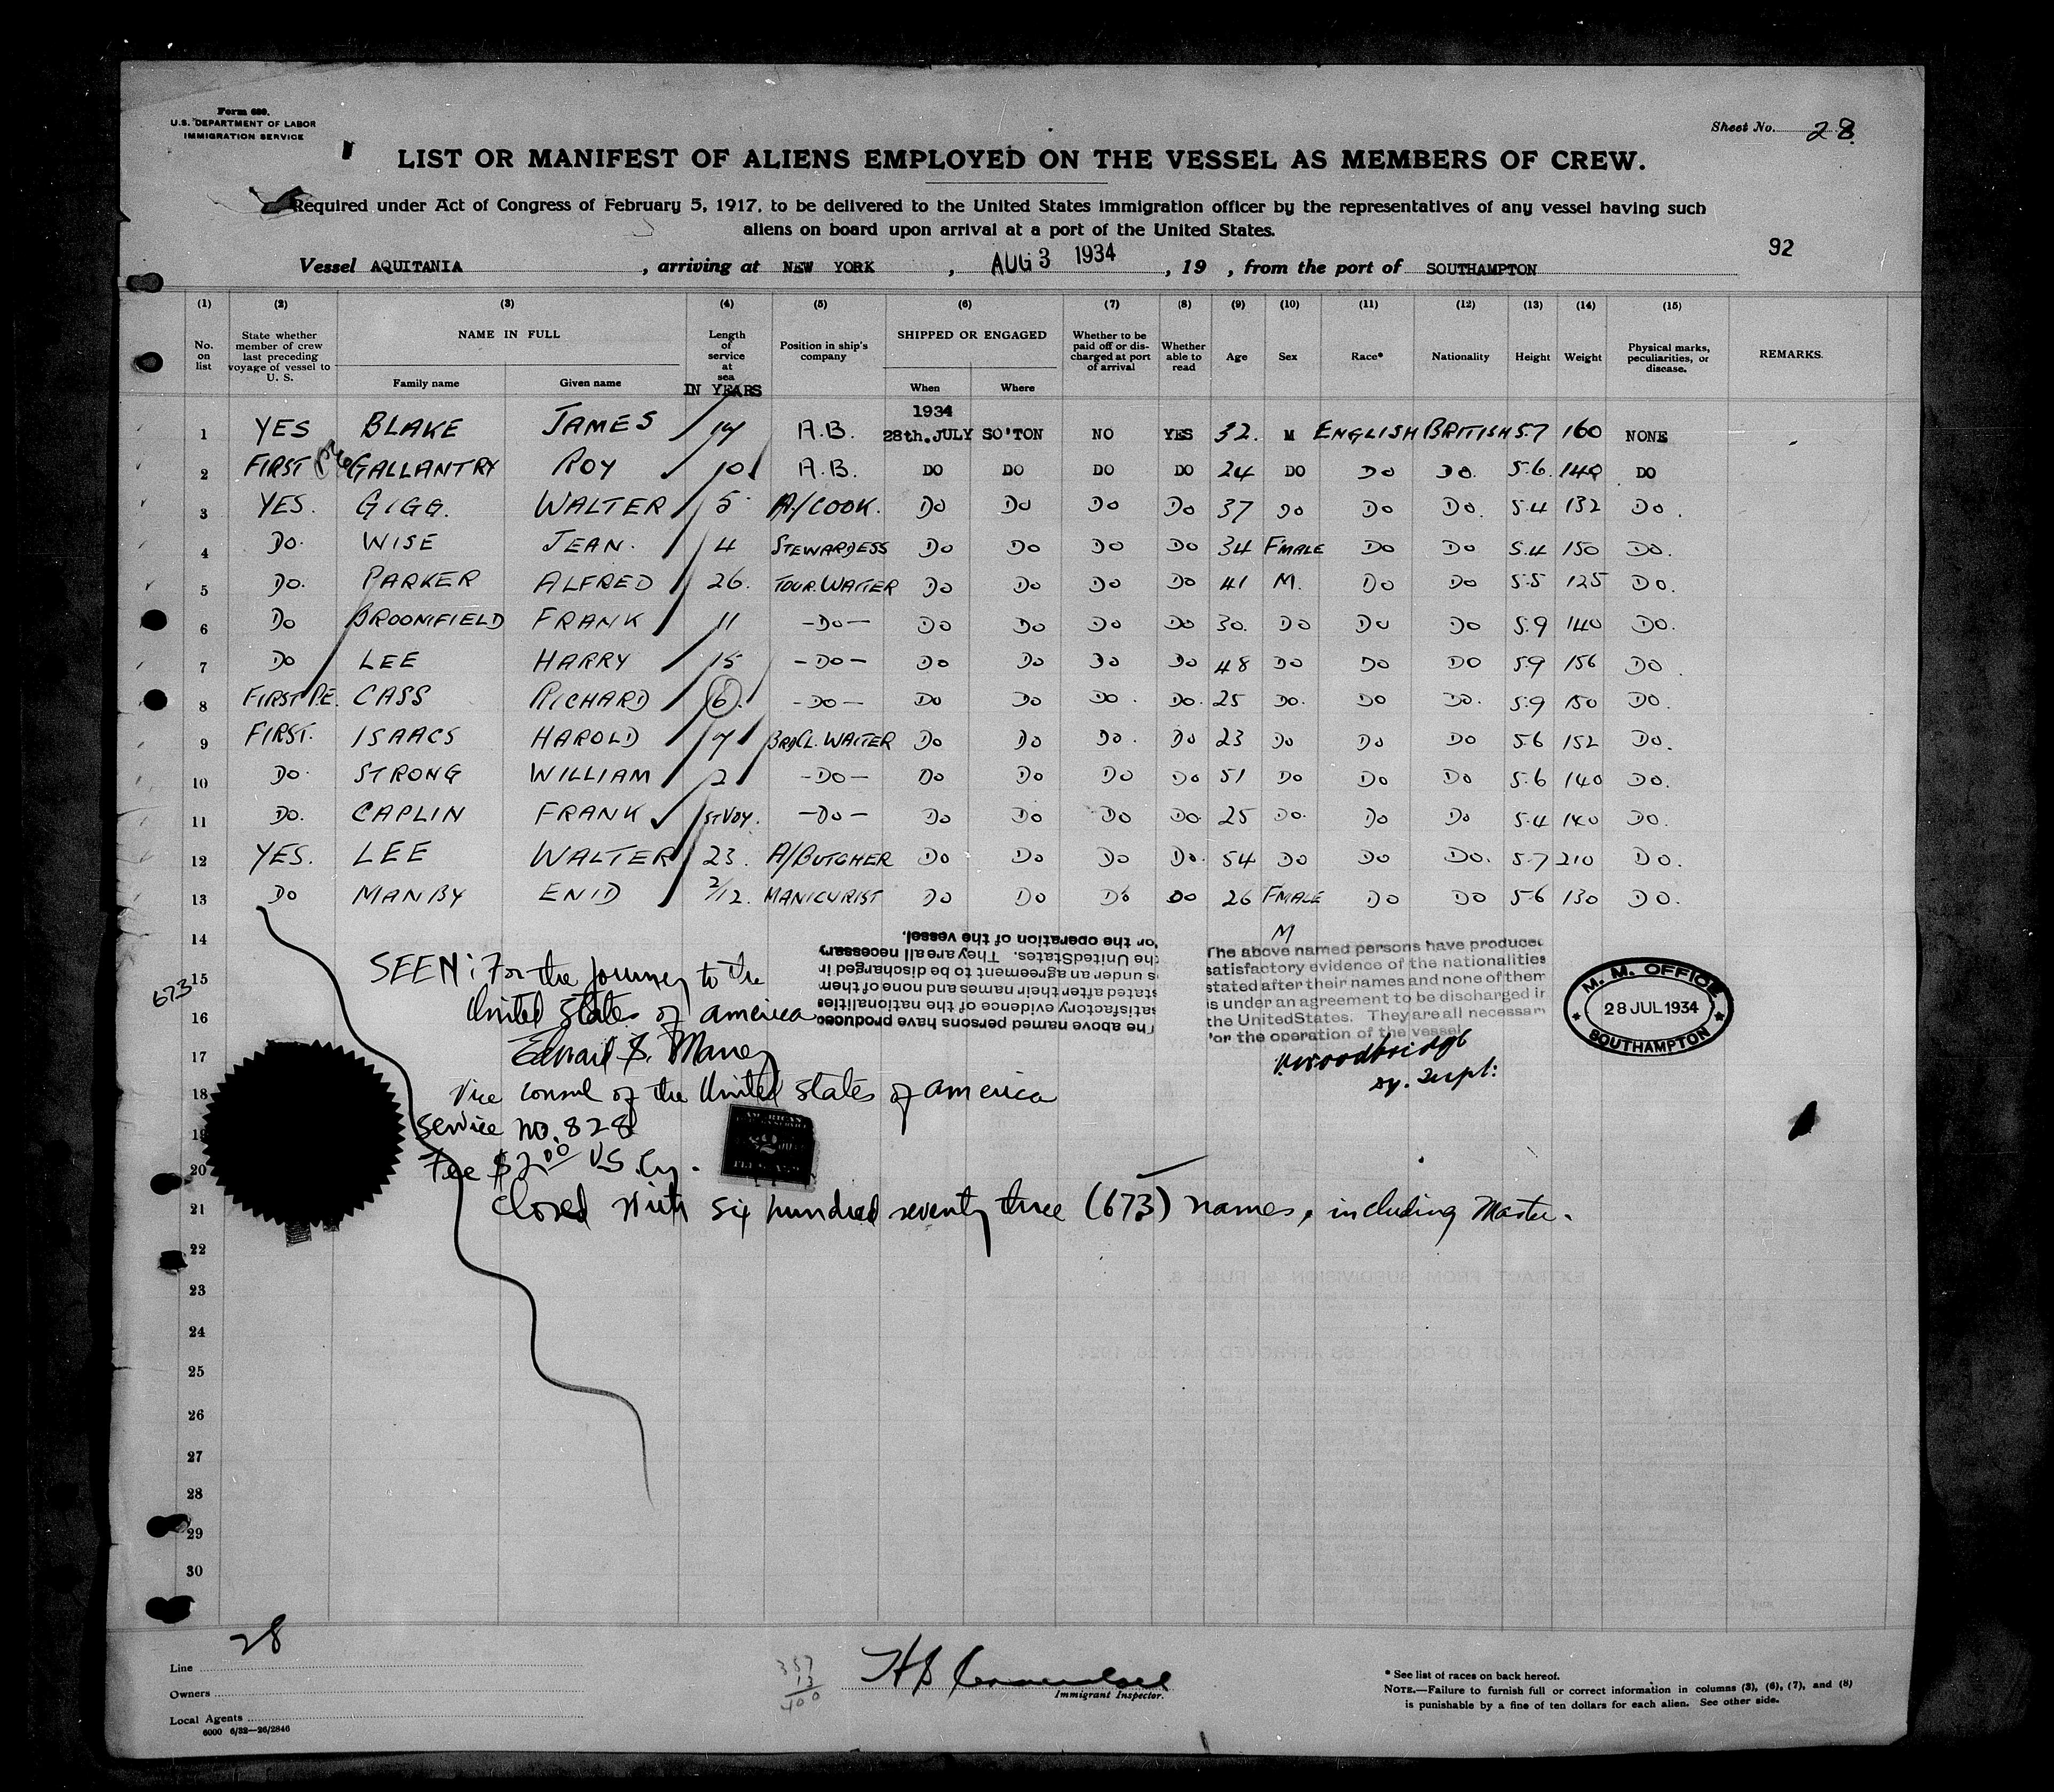 Form 689.
U.S. DEPARTMENT OF LABOR
IMMIGRATION SERVICE
Sheet No. 28
LIST OR MANIFEST OF ALIENS EMPLOYED ON THE VESSEL AS MEMBERS OF CREW.
Required under Act of Congress of February 5, 1917, to be delivered to the United States immigration officer by the representatives of any vessel having such
aliens on board upon arrival at a port of the United States.
92
Vessel AQUITANIA, arriving at NEW YORK, AUG 3 1934, 19 , from the port of SOUTHAMPTON
(1) (2) (3) (4) (5) (6) (7) (8) (9) (10) (11) (12) (13) (14) (15)
No. on list
State whether member of crew last preceding voyage of vessel to U. S.
NAME IN FULL
Family name
Given name
Length of service at sea
IN YEARS
Position in ship's company
SHIPPED OR ENGAGED
When
Where
Whether to be paid off or discharged at port of arrival
Whether able to read
Age
Sex
Race*
Nationality
Height
Weight
Physical marks, peculiarities, or disease.
REMARKS.
1934
1 YES BLAKE JAMES 14 A.B. 28th. JULY SO'TON NO YES 32. M ENGLISH BRITISH 5.7 160 NONE
2 FIRST GALLANTRY ROY 10 A.B. DO DO DO DO 24 DO DO DO. 5.6. 140 DO
3 YES. GIGG. WALTER 5 A/COOK. DO DO DO DO 37 DO DO DO. 5.4 132 DO.
4 DO. WISE JEAN. 4 STEWARDESS DO DO DO DO 34 FMALE DO DO 5.4 150 DO.
5 DO. PARKER ALFRED 26. TOUR. WAITER DO DO DO DO 41 M. DO DO 5.5 125 DO.
6 DO BROOMFIELD FRANK 11 -DO- DO DO DO DO 30. DO DO DO 5.9 140 DO.
7 DO LEE HARRY 15 -DO- DO DO DO DO 48 DO DO DO 5.9 156 DO
8 FIRST P.E. CASS RICHARD 6. -DO- DO DO DO. DO. 25 DO. DO DO. 5.9 150 DO.
9 FIRST. ISAACS HAROLD 7 3RD CL. WAITER DO DO DO. DO 23 DO DO DO 5.6 152 DO.
10 DO. STRONG WILLIAM 2 -DO- DO DO DO DO 51 DO DO DO 5.6 140 DO.
11 DO. CAPLIN FRANK 1ST VOY. -DO- DO DO DO DO. 25 DO. DO DO 5.4 140 DO.
12 YES. LEE WALTER 23. A/BUTCHER DO DO DO DO. 54 DO DO DO. 5.7 210 DO.
13 DO MANBY ENID 2/12. MANICURIST DO DO DO DO 26 FMALE DO DO 5.6 130 DO.
14
M
The above named persons have produced
satisfactory evidence of the nationalities
stated after their names and none of them
is under an agreement to be discharged in
the United States. They are all necessary
for the operation of the vessel.
The above named persons have produced
satisfactory evidence of the nationalities
stated after their names and none of them
is under an agreement to be discharged in
the United States. They are all necessary
for the operation of the vessel
Woodbridge
M. M. OFFICE
28 JUL 1934
SOUTHAMPTON
673
15
SEEN: For the journey to the
16
United States of America
17
Edward S. Maney
18
Vice Consul of the United States of America
19
Service No. 828
20
Fee $2.00 US Cy.
AMERICAN
2
21
Closed with six hundred seventy three (673) names, including Master.
22
23
24
25
26
27
28
29
30
28
Line
Owners
Local Agents
6000 6/32—26/2846
357
13
400
Immigrant Inspector.
* See list of races on back hereof.
NOTE.—Failure to furnish full or correct information in columns (3), (6), (7), and (8)
is punishable by a fine of ten dollars for each alien. See other side.